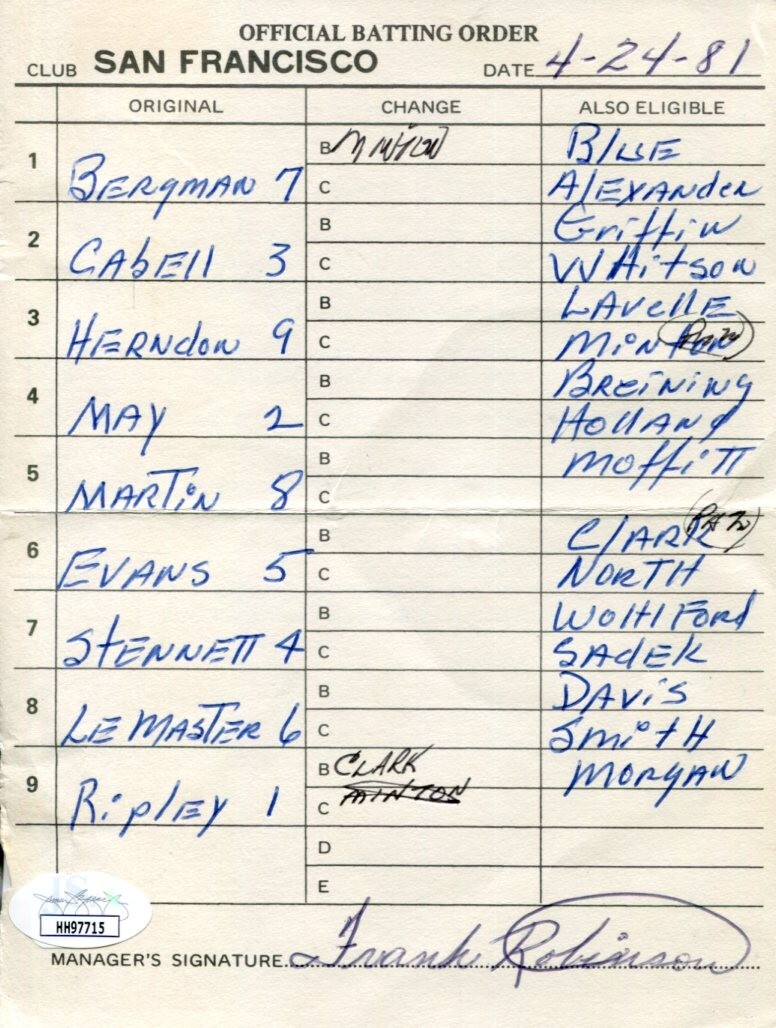 OFFICIAL BATTING ORDER
CLUB SAN FRANCISCO DATE 4-24-81
ORIGINAL CHANGE ALSO ELIGIBLE
1 BERGMAN 7 B MINTON BLUE
C ALEXANDER
2 CABELL 3 B GRIFFIN
C WHITSON
3 HERNDON 9 B LAVELLE
C MINTON
4 MAY 2 B BREINING
C HOLLAND
5 MARTIN 8 B MOFFITT
C
6 EVANS 5 B CLARK
C NORTH
7 STENNETT 4 B WOHLFORD
C SADEK
8 LE MASTER 6 B DAVIS
C SMITH
9 RIPLEY 1 B CLARK MORGAN
C MINTON
D
E
HH97715
MANAGER'S SIGNATURE Frank Robinson